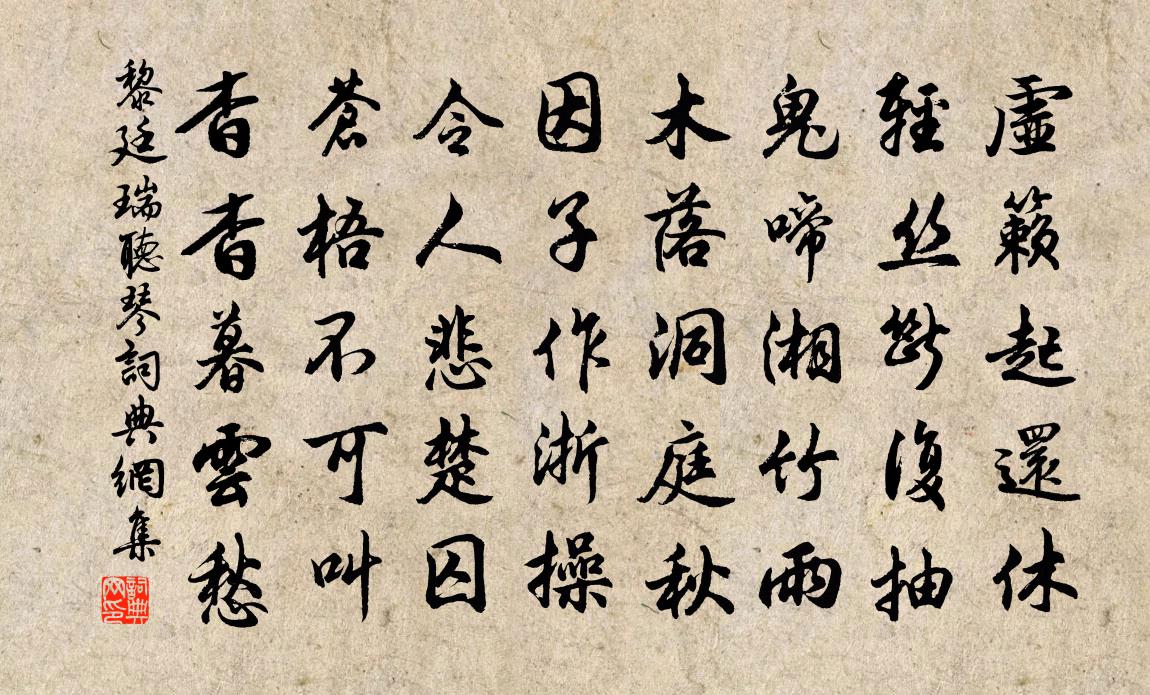 虛籟起還休
輕丝斷復抽
鬼啼湘竹雨
木落洞庭秋
因子作浙操
令人悲楚囚
蒼梧不可叫
杳杳暮雲愁
黎廷瑞聽琴詞典網集
詞典网印